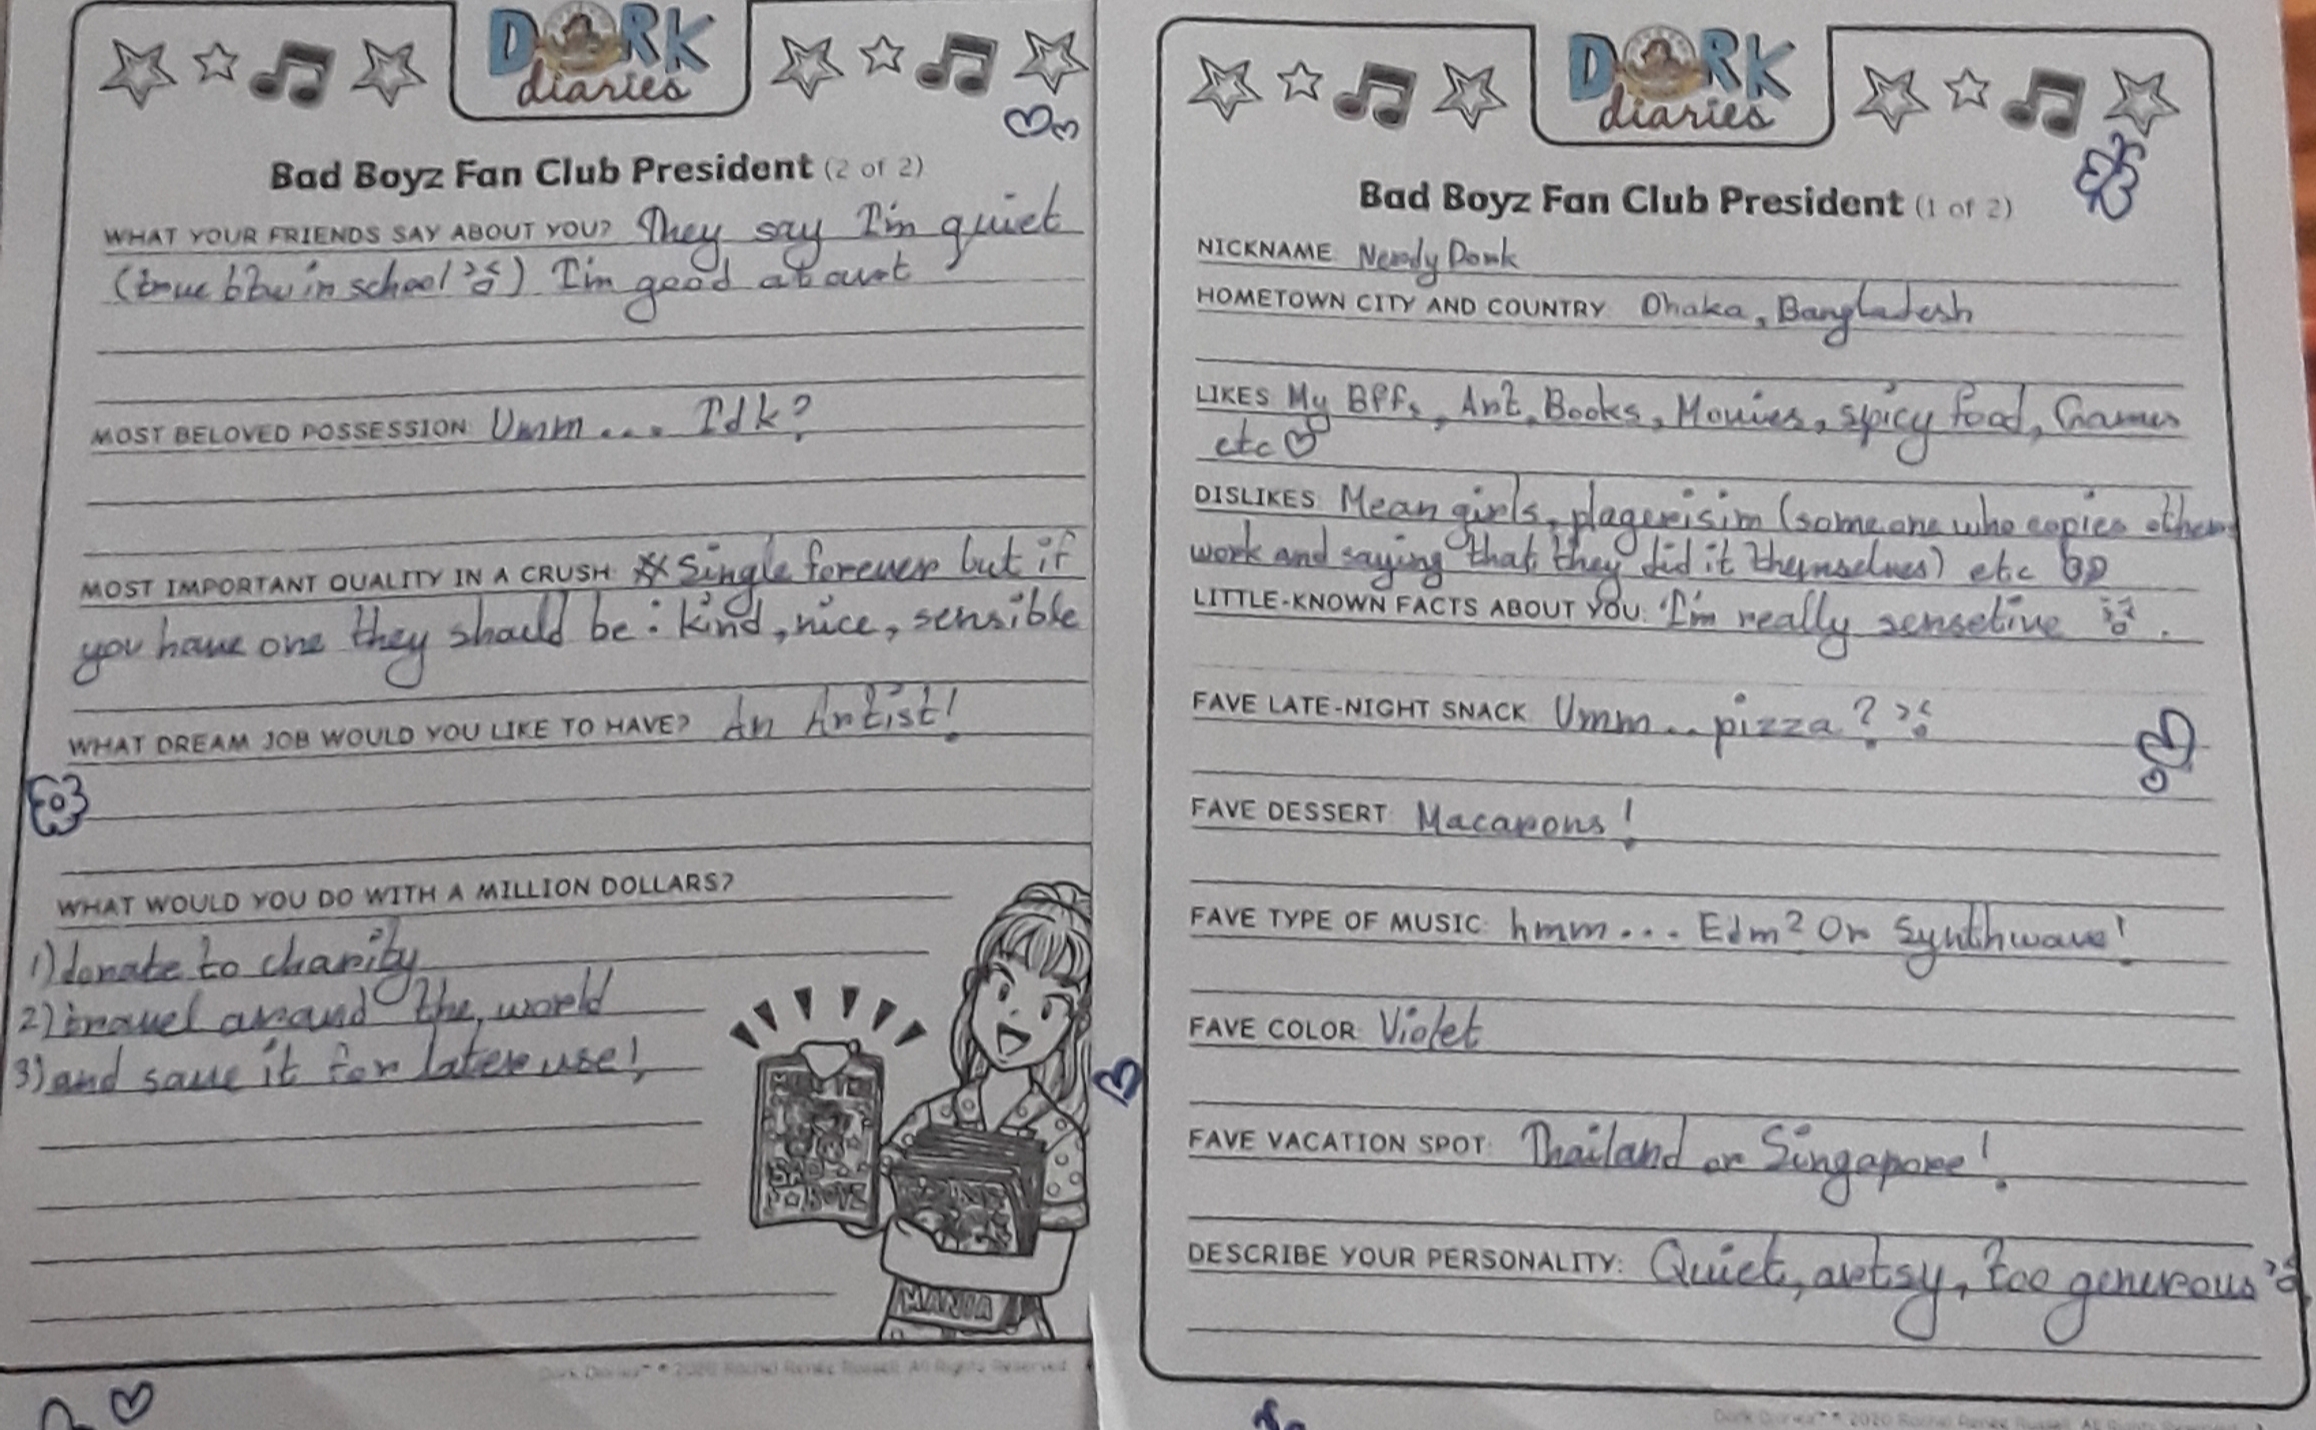 DORK
diaries
Bad Boyz Fan Club President (2 of 2)
WHAT YOUR FRIENDS SAY ABOUT YOU? They say I'm quiet
(true btw in school) I'm good at art
MOST BELOVED POSSESSION: Umm.... Idk?
MOST IMPORTANT QUALITY IN A CRUSH: Single forever but if
you have one they should be: kind, nice, sensible
WHAT DREAM JOB WOULD YOU LIKE TO HAVE? An Artist!
WHAT WOULD YOU DO WITH A MILLION DOLLARS?
1) donate to charity
2) travel around the world
3) and save it for later use!
BAD
BOYZ
MANIA
Dork Diaries™ © 2020 Rachel Renée Russell. All Rights Reserved.
DORK
diaries
Bad Boyz Fan Club President (1 of 2)
NICKNAME: Nerdy Dork
HOMETOWN CITY AND COUNTRY: Dhaka, Bangladesh
LIKES: My BFFs, Art, Books, Movies, spicy food, Games
etc ♡
DISLIKES: Mean girls, plagerisim (someone who copies others
work and saying that they did it themselves) etc
LITTLE-KNOWN FACTS ABOUT YOU: I'm really sensetive
FAVE LATE-NIGHT SNACK: Umm... pizza?
FAVE DESSERT: Macarons!
FAVE TYPE OF MUSIC: hmm... Edm? Or Synthwave!
FAVE COLOR: Violet
FAVE VACATION SPOT: Thailand or Singapore!
DESCRIBE YOUR PERSONALITY: Quiet, artsy, too generous
Dork Diaries™ © 2020 Rachel Renée Russell. All Rights Reserved.